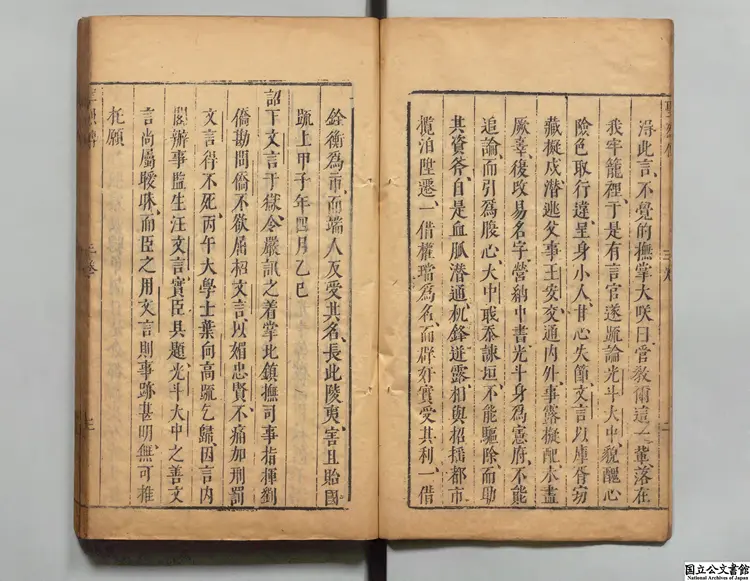 淂此言、不覺的撫掌大咲曰、管教衕這一輩落在
我牢籠裡、于是有言官遂䟽論光斗大中、貌醜心
險、色取行違、呈身小人、甘心失節、文言以庫胥窃
藏擬戍潜逃、父事王安、交通内外、事露擬配、未盡
厥辜、後改易名字、營納中書、光斗身爲憲府、不能
追論、而引爲腹心、大中取忝諫垣、不能驅除、而助
其資斧、自是血脉潜通、机鋒迸露、相與招揺都市、
攬泊陞遷、一借權璫爲名、而群奸實受其利、一借
銓衡爲市、而端人反受其名、長此陵夷、害且貽國
䟽上甲子年四月乙巳
詔下文言于獄、令嚴訊之、着掌北鎮撫司事指揮劉
僑勘問、僑不欲屈招文言、以媚忠賢、不痛加刑罰
文言得不死、丙午大學士葉向高䟽乞歸、因言内
閣辦事監生汪文言實臣具題、光斗大中之善文
言尚屬曖昧、而臣之用文言則事跡甚明、無可推
托、願
三卷
国立公文書館
National Archives of Japan